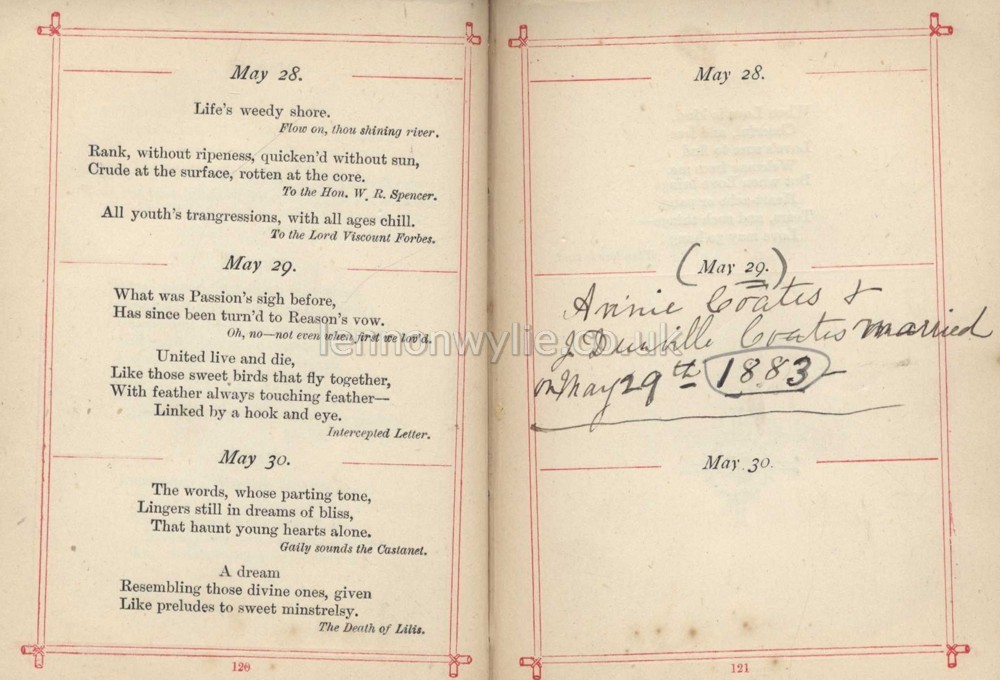 May 28.
Life's weedy shore.
Flow on, thou shining river.
Rank, without ripeness, quicken'd without sun,
Crude at the surface, rotten at the core.
To the Hon. W. R. Spencer.
All youth's trangressions, with all ages chill.
To the Lord Viscount Forbes.
May 29.
What was Passion's sigh before,
Has since been turn'd to Reason's vow.
Oh, no—not even when first we lov'd.
United live and die,
Like those sweet birds that fly together,
With feather always touching feather—
Linked by a hook and eye.
Intercepted Letter.
May 30.
The words, whose parting tone,
Lingers still in dreams of bliss,
That haunt young hearts alone.
Gaily sounds the Castanet.
A dream
Resembling those divine ones, given
Like preludes to sweet minstrelsy.
The Death of Lilis.
120
May 28.
(May 29.)
Annie Coates &
J Dunville Coates married
on May 29th 1883
May 30.
121
lennonwylie.co.uk